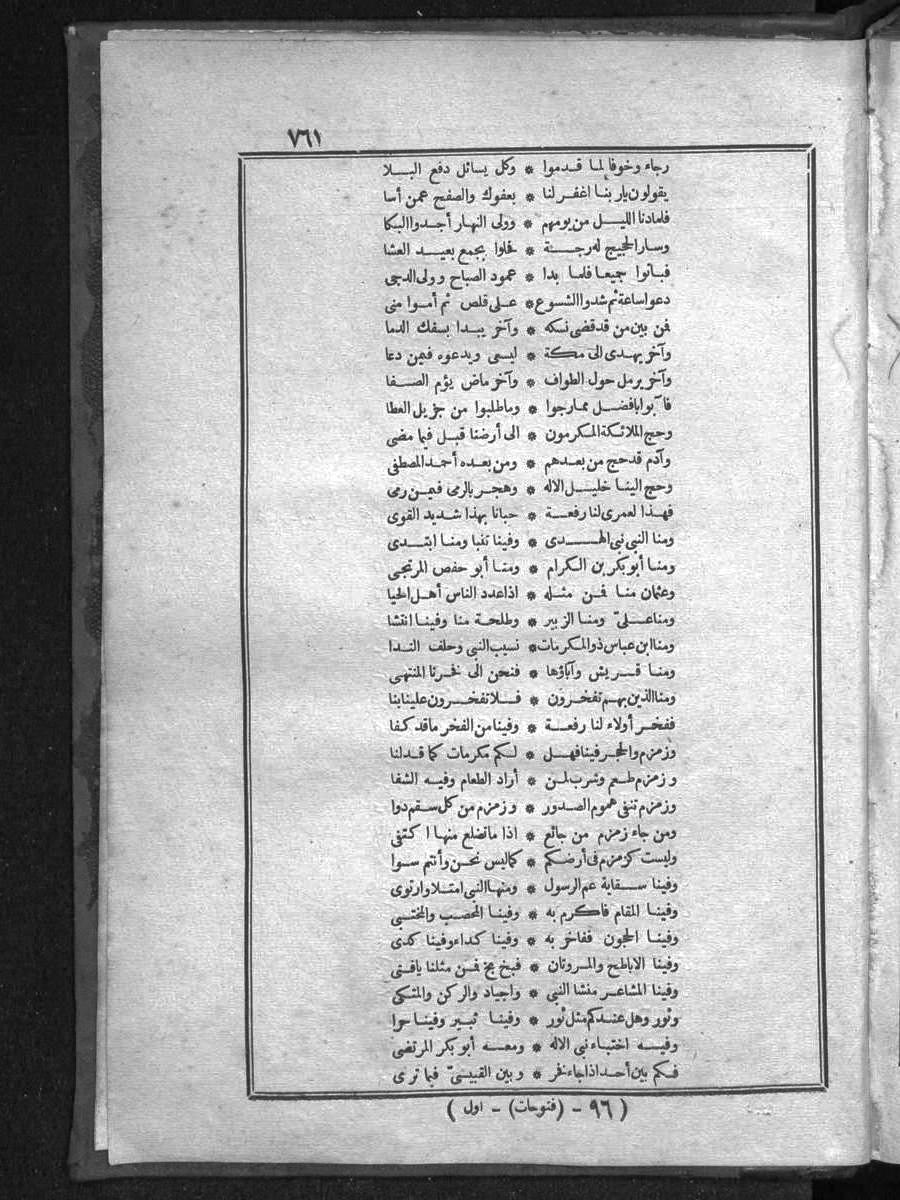 ٧٦١
رجاء وخوفا لما قدموا * وكل يسائل دفع البلا
يقولون يا ربنا اغفر لنا * بعفوك والصفح عمن أسا
فلما دنا الليل من يومهم * وولى النهار أجدوا البكا
وسار الحجيج له رجة * فحلوا بجمع بعيد العشا
فباتوا جميعا فلما بدا * عمود الصباح وولى الدجى
دعوا ساعة ثم شدوا الشسوع * على قلص ثم أموا منى
فمن بين من قد قضى نسكه * وآخر يبدا بسفك الدما
وآخر يهدى الى مكة * ليسعى ويدعوه فيمن دعا
وآخر يرمل حول الطواف * وآخر ماض يؤم الصفا
فآبوا بأفضل مما رجوا * وما طلبوا من جزيل العطا
وحج الملائكة المكرمون * الى أرضنا قبل فيما مضى
وآدم قد حج من بعدهم * ومن بعده أحمد المصطفى
وحج الينا خليل الاله * وهجر بالرمى فيمن رمى
فهذا لعمرى لنا رفعة * حبانا بهذا شديد القوى
ومنا النبى نبى الهدى * وفينا تنبا ومنا ابتدى
ومنا أبو بكر بن الكرام * ومنا أبو حفص المرتجى
وعثمان منا فمن مثله * اذا عدد الناس أهل الحيا
ومنا علىّ ومنا الزبير * وطلحة منا وفينا انتشا
ومنا ابن عباس ذو المكرمات * نسيب النبى وحلف الندا
ومنا قريش وآباؤها * فنحن الى فخرنا المنتهى
ومنا الذين بهم تفخرون * فلا تفخرون علينا بنا
ففخر أولاء لنا رفعة * وفينا من الفخر ما قد كفا
وزمزم والحجر فينا فهل * لكم مكرمات كما قد لنا
وزمزم طعم وشرب لمن * أراد الطعام وفيه الشفا
وزمزم تنفى هموم الصدور * وزمزم من كل سقم دوا
ومن جاء زمزم من جائع * اذا ما تضلع منها اكتفى
وليست كزمزم فى أرضكم * كما ليس نحن وأنتم سوا
وفينا سقاية عم الرسول * ومنها النبى امتلا وارتوى
وفينا المقام فاكرم به * وفينا المحصب والمختبى
وفينا الحجون ففاخر به * وفينا كداء وفينا كدى
وفينا الاباطح والمروتان * فبخ بخ فمن مثلنا يا فتى
وفينا المشاعر منشا النبى * واجياد والركن والمتكى
وثور وهل عندكم مثل ثور * وفينا ثبير وفينا حرا
وفيه اختباء نبى الاله * ومعه أبو بكر المرتضى
فكم بين أحد اذا جاء فخر * وبين القبيسىّ فيما ترى
( ٩٦ - (فتوحات) - اول )